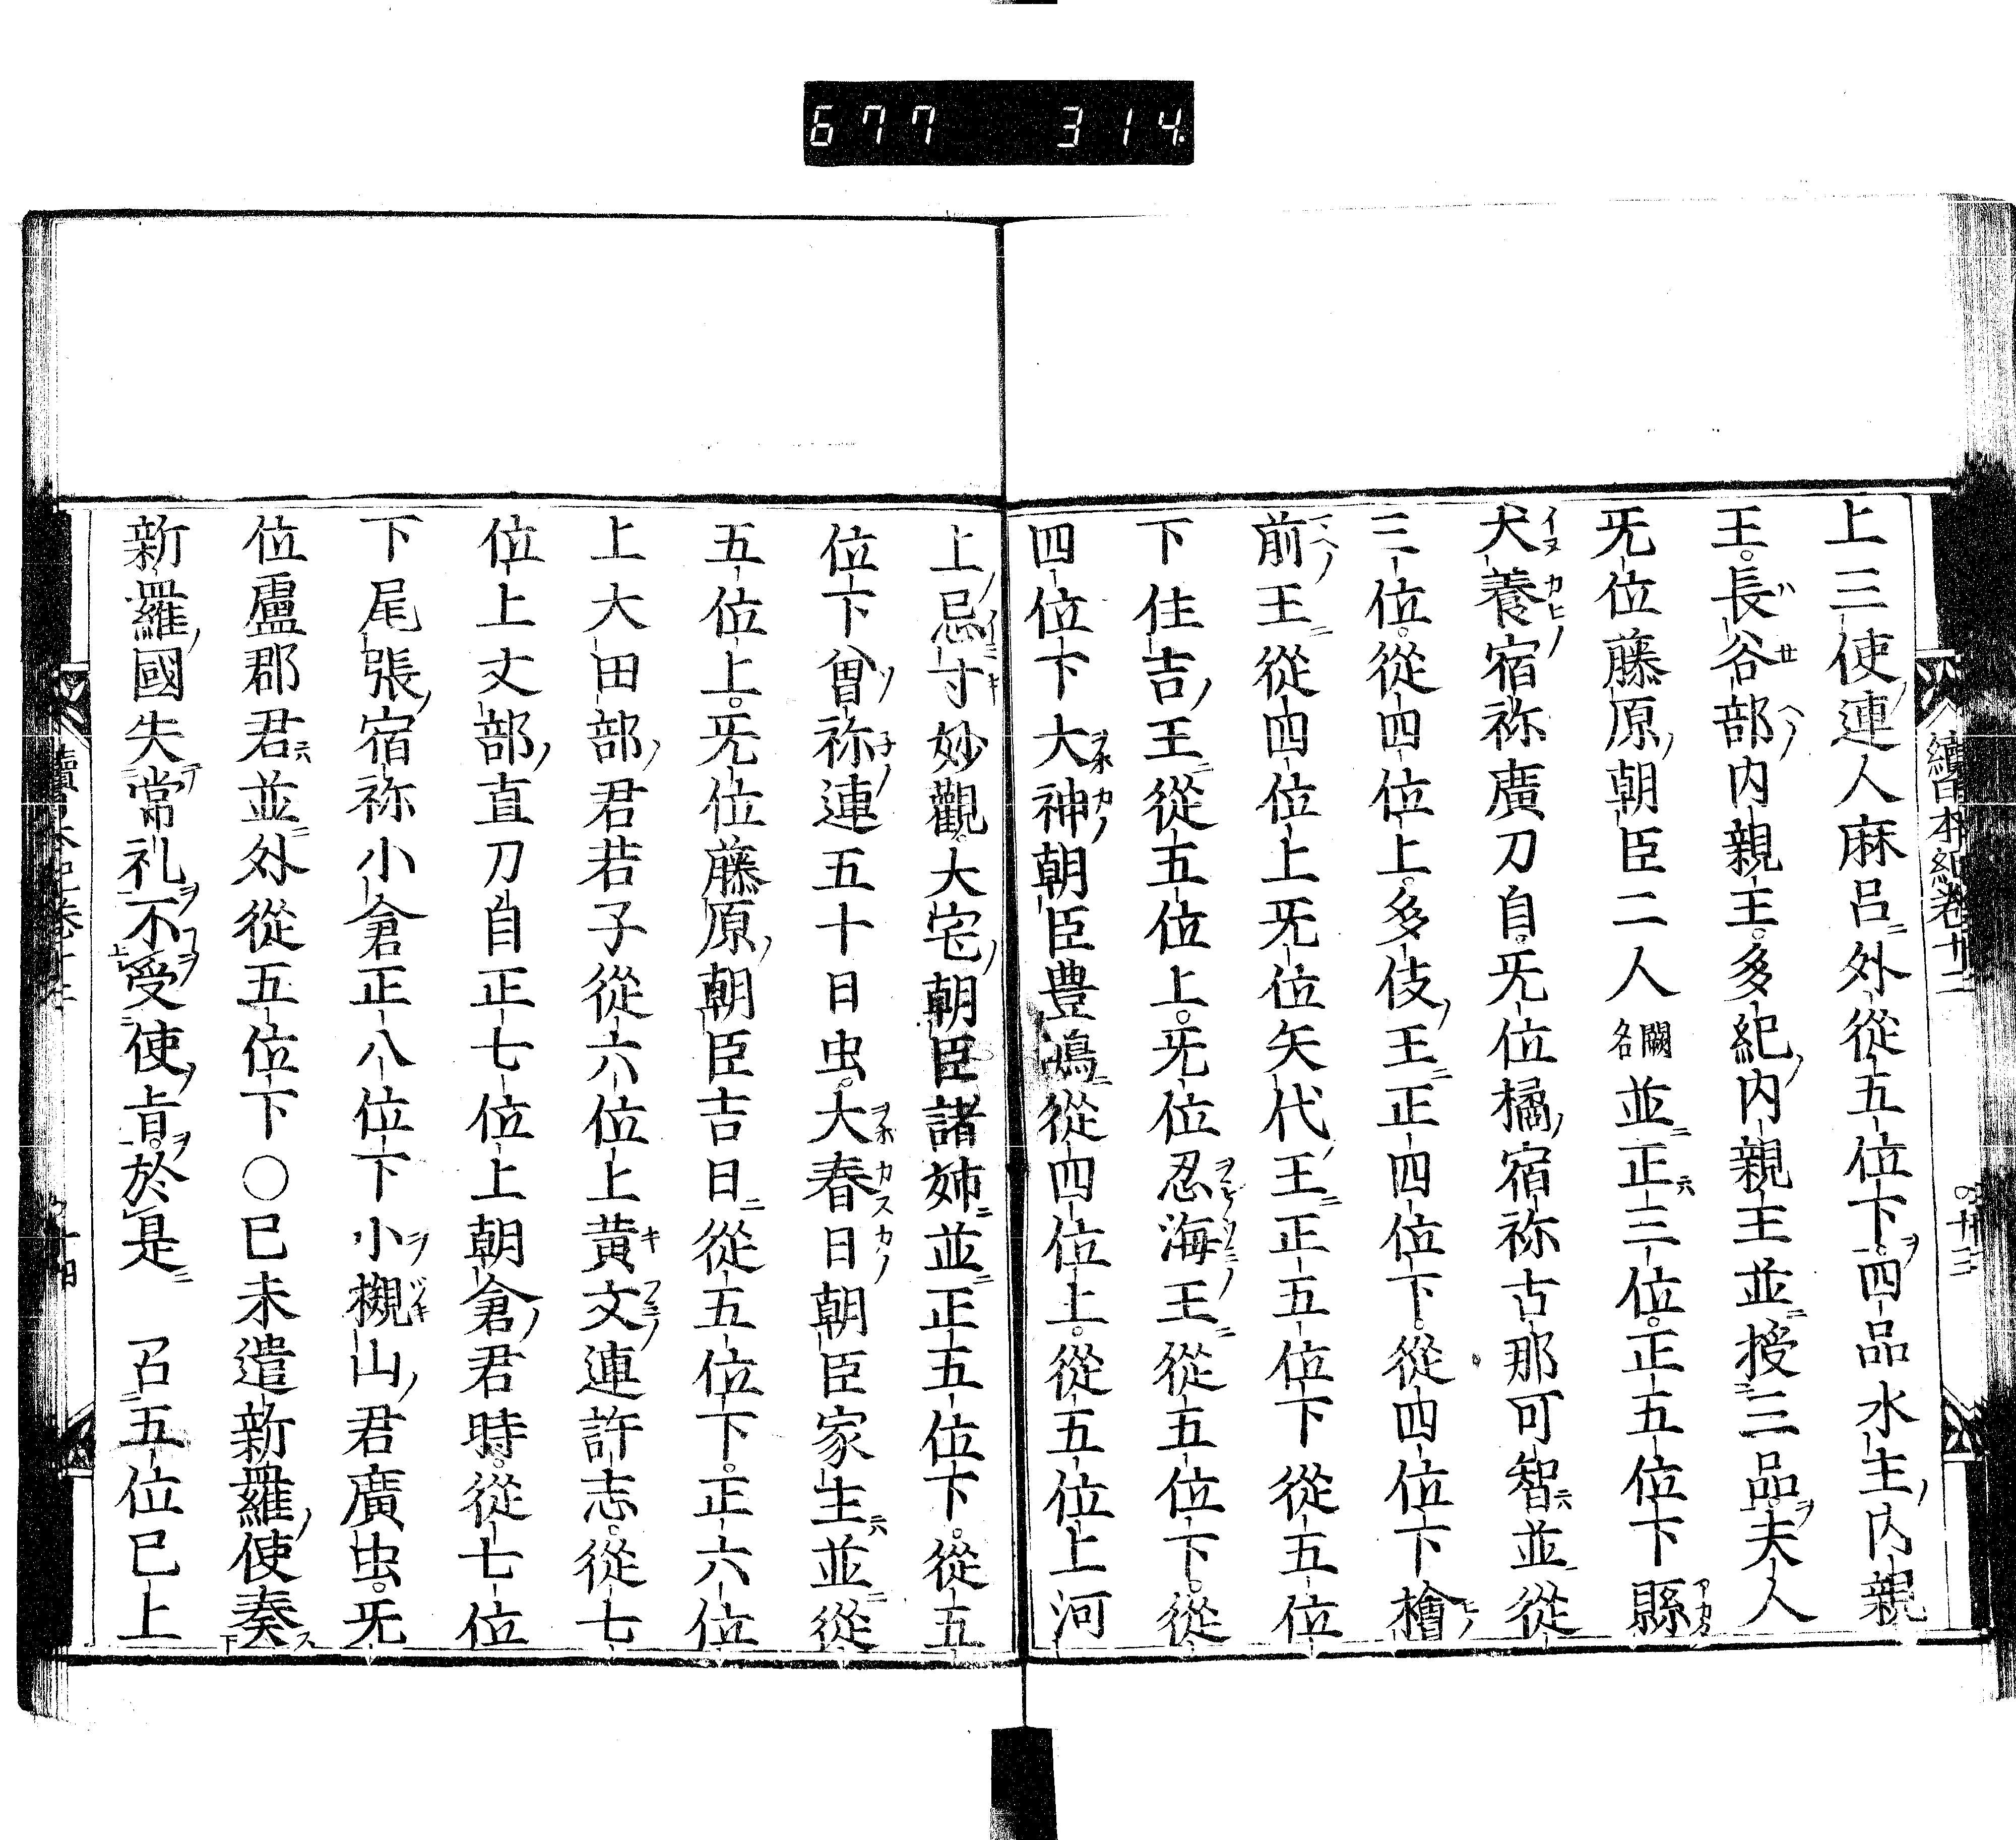 677 314
續日本紀卷十二
上三使連人麻呂外從五位下四品水主内親
王長谷部内親王多紀内親王並授三品夫人
旡位藤原朝臣二人闕名並正三位正五位下縣
犬養宿祢廣刀自旡位橘宿祢古那可智並從
三位從四位上多伎王正四位下從四位下檜
前王從四位上旡位矢代王正五位下從五位
下住吉王從五位上旡位忍海王從五位下從
四位下大神朝臣豊嶋從四位上從五位上河
上忌寸妙觀大宅朝臣諸姉並正五位下從五
位下曾祢連五十日虫大春日朝臣家主並從
五位上旡位藤原朝臣吉日從五位下正六位
上大田部君若子從六位上黄文連許志從七
位上丈部直刀自正七位上朝倉君時從七位
下尾張宿祢小倉正八位下小槻山君廣虫旡
位盧郡君並外從五位下○巳未遣新羅使奏
新羅國失常礼不受使旨於是 召五位巳上